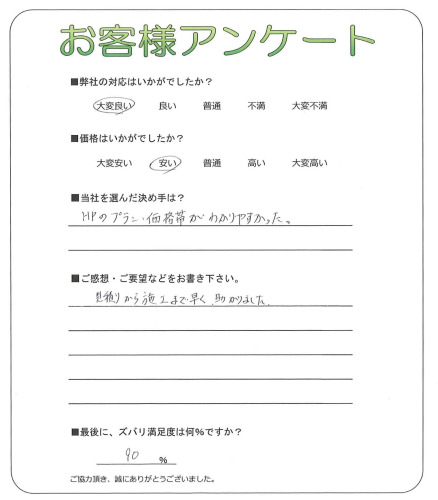 お客様アンケート
■弊社の対応はいかがでしたか？
大変良い 良い 普通 不満 大変不満
■価格はいかがでしたか？
大変安い 安い 普通 高い 大変高い
■当社を選んだ決め手は？
HPのプラン・価格帯がわかりやすかった。
■ご感想・ご要望などをお書き下さい。
見積りから施工まで早く助かりました。
■最後に、ズバリ満足度は何%ですか？
90 %
ご協力頂き、誠にありがとうございました。